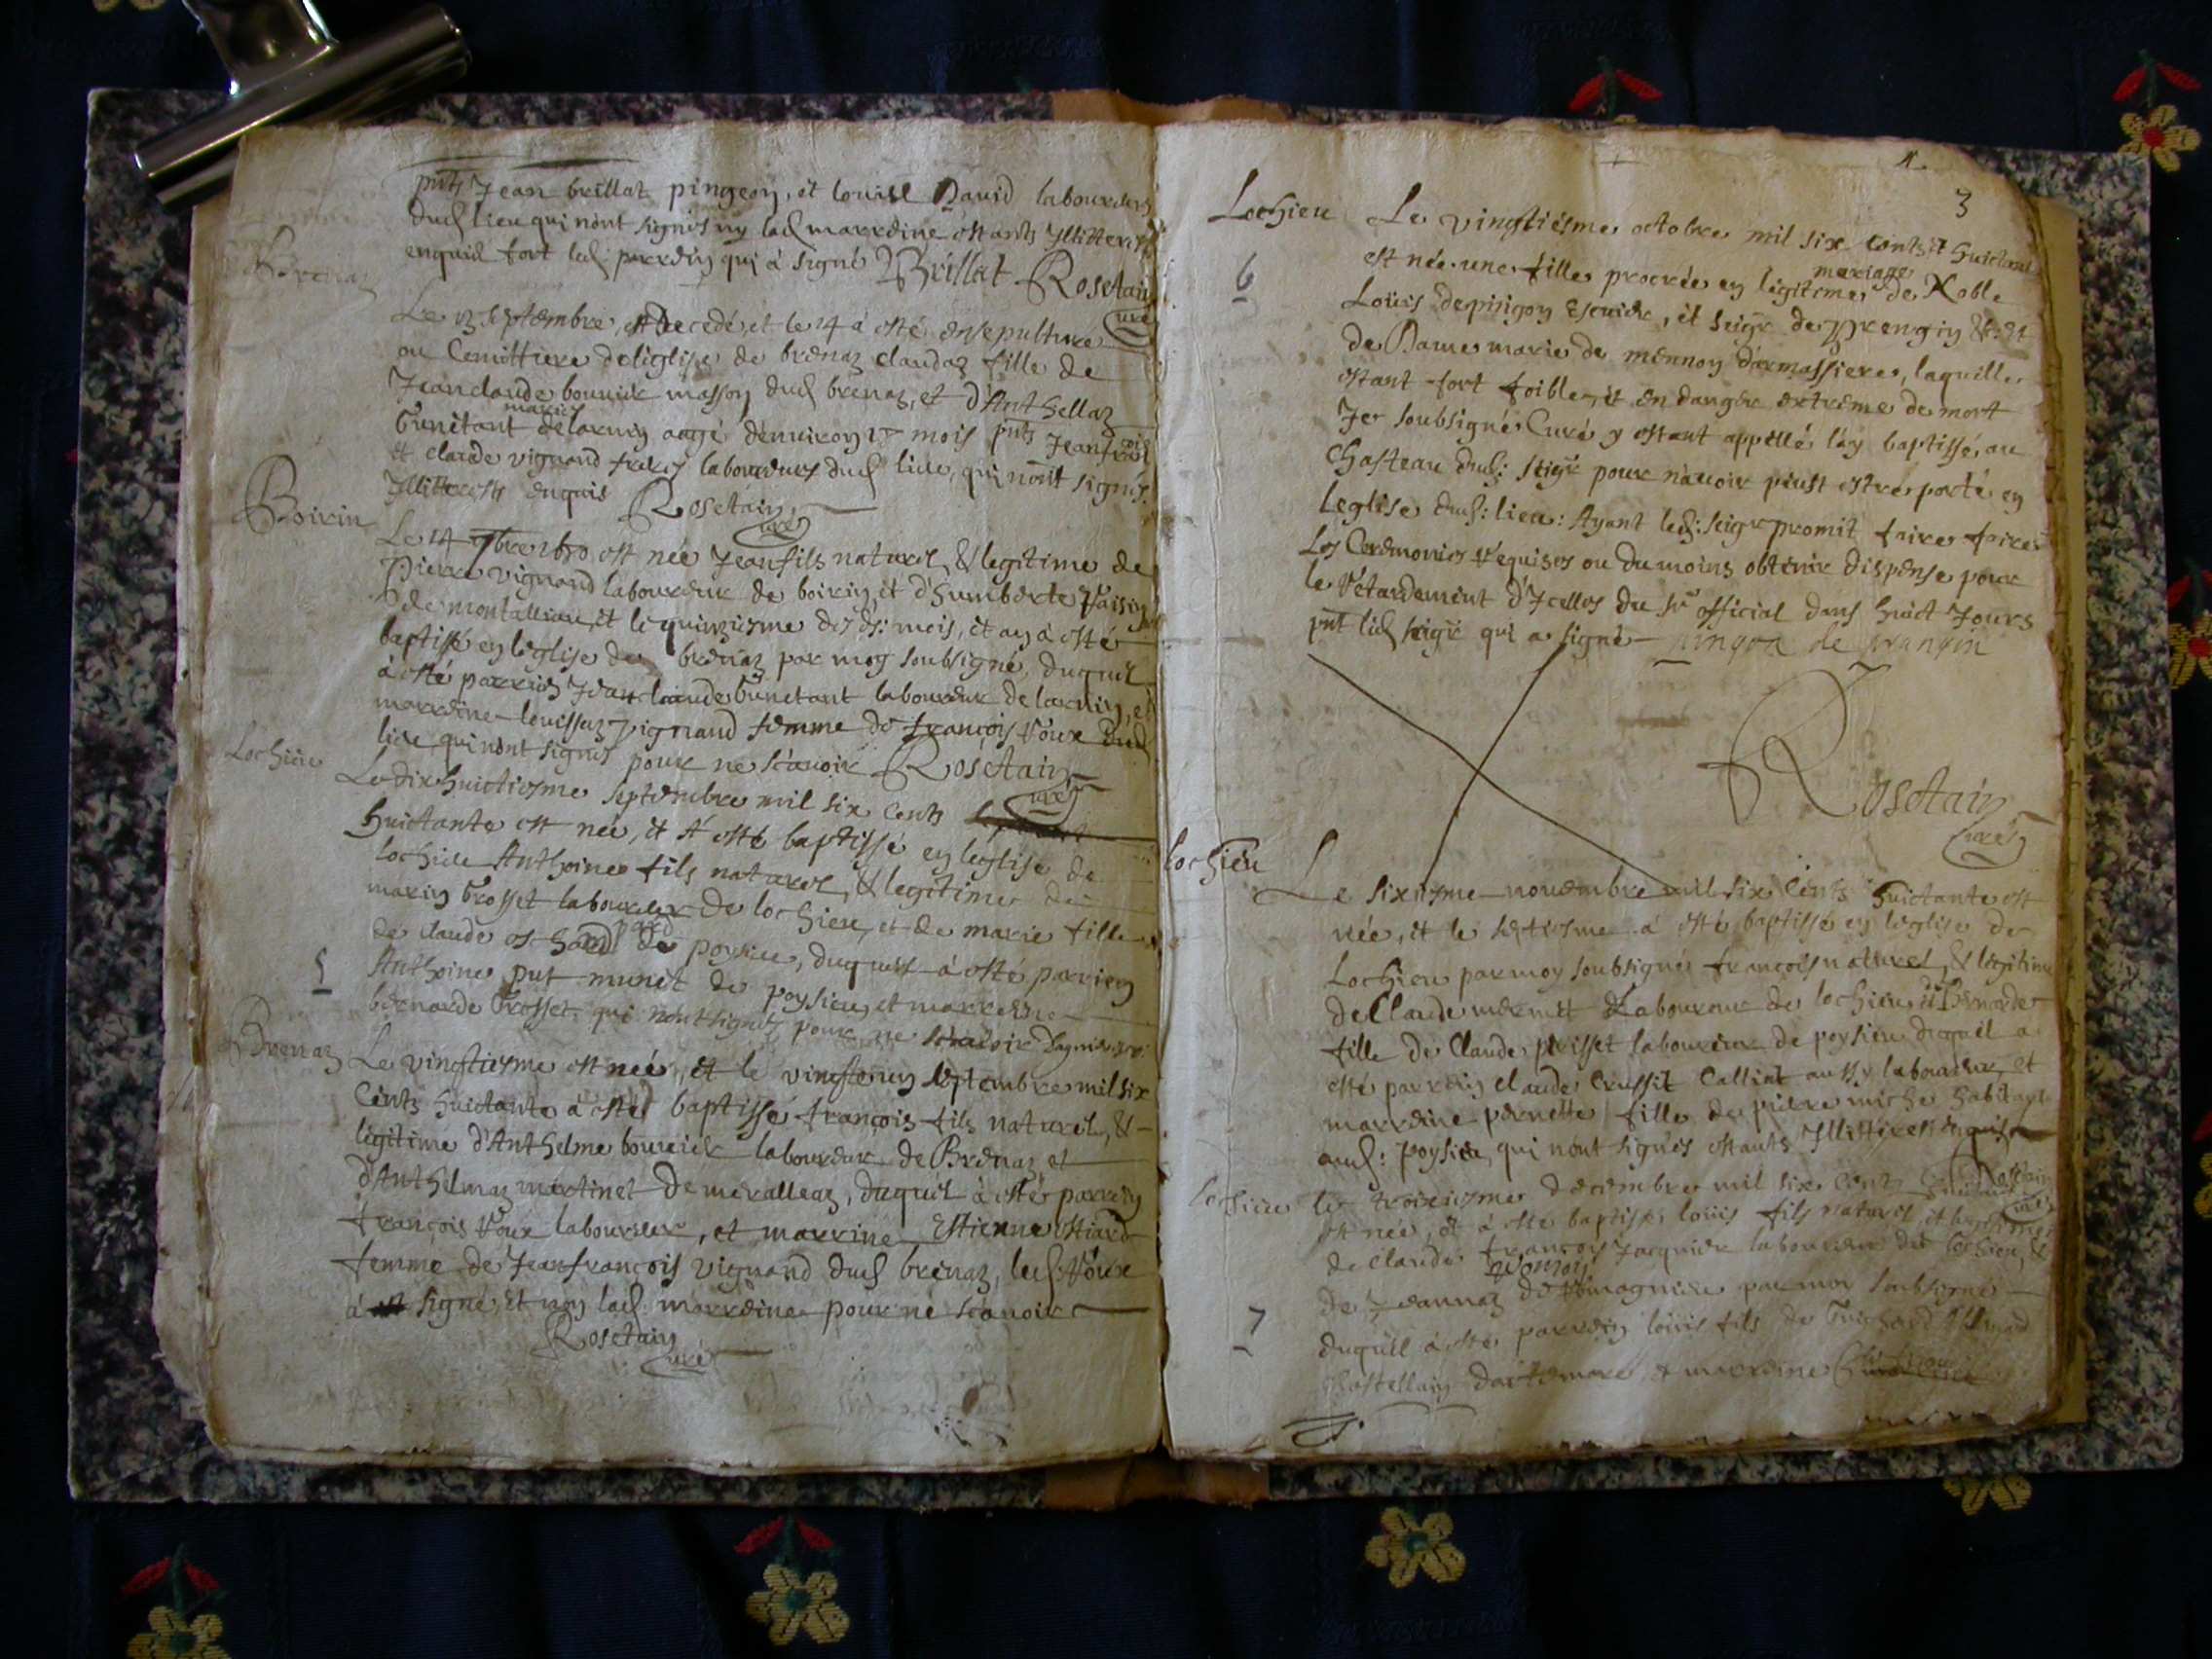 pnts Jean brillat pingeon, et louise David laboureurs
dud lieu qui n'ont signés ny lad marreine estants Jllitterés
enquis fort led parrein qui à signé Brillat Rosetain
curé
Brenaz
Le 13 septembre, est decedé, et le 14 à esté ensepulturé
au Cemittiere de l'église de brenaz claudaz fille de
Jeanclaude bouvier masson dud brenaz, et d'Anthellaz
marier
Gunetant de lacruin aagé d'environ 17 mois pnts Jeanfrcois
et claude vignand freres laboureurs dud lieu, qui n'ont signés
Jllitterests enquis Rosetain
curé
Boirin
Le 14 7bre 1680 est née Jean fils naturel & legitime de
Pierre vignand laboureur de boirin, et d'humberte
de montallieu, et le quinziesme des ds: mois, et an à esté
baptissé en leglise de brenaz par moy soubsigné, duquel
à esté parrein Jean claude Gunetant laboureur de lacruin, et
marreine louissaz vignand femme de françois Roux dud
lieu qui n'ont signés pour ne scavoir Rosetain
curé
Lochieu
Le dixhuictiesme septembre mil six cents
huictante est née, et a esté baptissé en leglise de
lochieu Anthoine fils naturel & legitime de
marin Grosset laboureur de lochieu, et de marie fille
de claude de poysieu, duquel à esté parrien
5
Anthoine put munet de poysieu, et marreine
bernarde Grosset, qui n'ont signés pour ne scavoir
Brenaz
Le vingtiesme est née, et le vingtenuy septembre mil six
Cents huictante à esté baptissé françois fils naturel, &
légitime d'Anthelme bouvier laboureur de Brenaz, et
d'Anthelmaz martinet de meralleaz, duquel à esté parrein
françois Roux laboureur, et marrine Estienne
femme de Jeanfrancois vignand dud brenaz, led Roux
à signé, et non lad marreine pour ne scavoir
Rosetain
curé
3
Lochieu
Le vingtiésme octobre mil six cents et huictante
6
est née une fille procréée en légitime mariage de Noble
Loüis depingon Escuier, et seigr de Prengin &: et
de Dame marie de mennon d'armassiere, laquelle
estant fort foible, et en danger extreme de mort
Je soubsigné Curé y estant appellé l'ay baptissé, au
Chasteau dud: seigr pour n'avoir peust estre porté en
Leglise dud: lieu: Ayant led: seigr promit faire faire
Les Ceremonies requises ou du moins obtenir dispense pour
le retardement d'Jcelles du sr official dans huict Jours
pnt led seigr qui a signé pingon de prangin
Rosetain
curé
Lochieu
Le sixiesme novembre mil six Cents huictante est
née, et le septiesme à esté baptissé en leglise de
Lochieu par moy soubsigné françois naturel, & legitime
de Claude mermet Laboureur de lochieu, et bernarde
fille de Claude plisset laboureur de poysieu duquel a
esté parrein claude Crussit Calliat aussy laboureur, et
marreine pernette fille de pierre miche habitant
aud: poysieu, qui n'ont signés estants Jllitterests enquis
Rosetain
curé
Lochieu
le troisiesme decembre mil six cents huictante
est née, et à esté baptissé loüis fils naturel, et legitime
de claude françois Jacquier laboureur dud lochieu, &
de Jeannaz de Romagnieu par moy soubsigné
7
duquel à esté parrein loüis fils de Guichard
chastellain d'artemare, & marreine